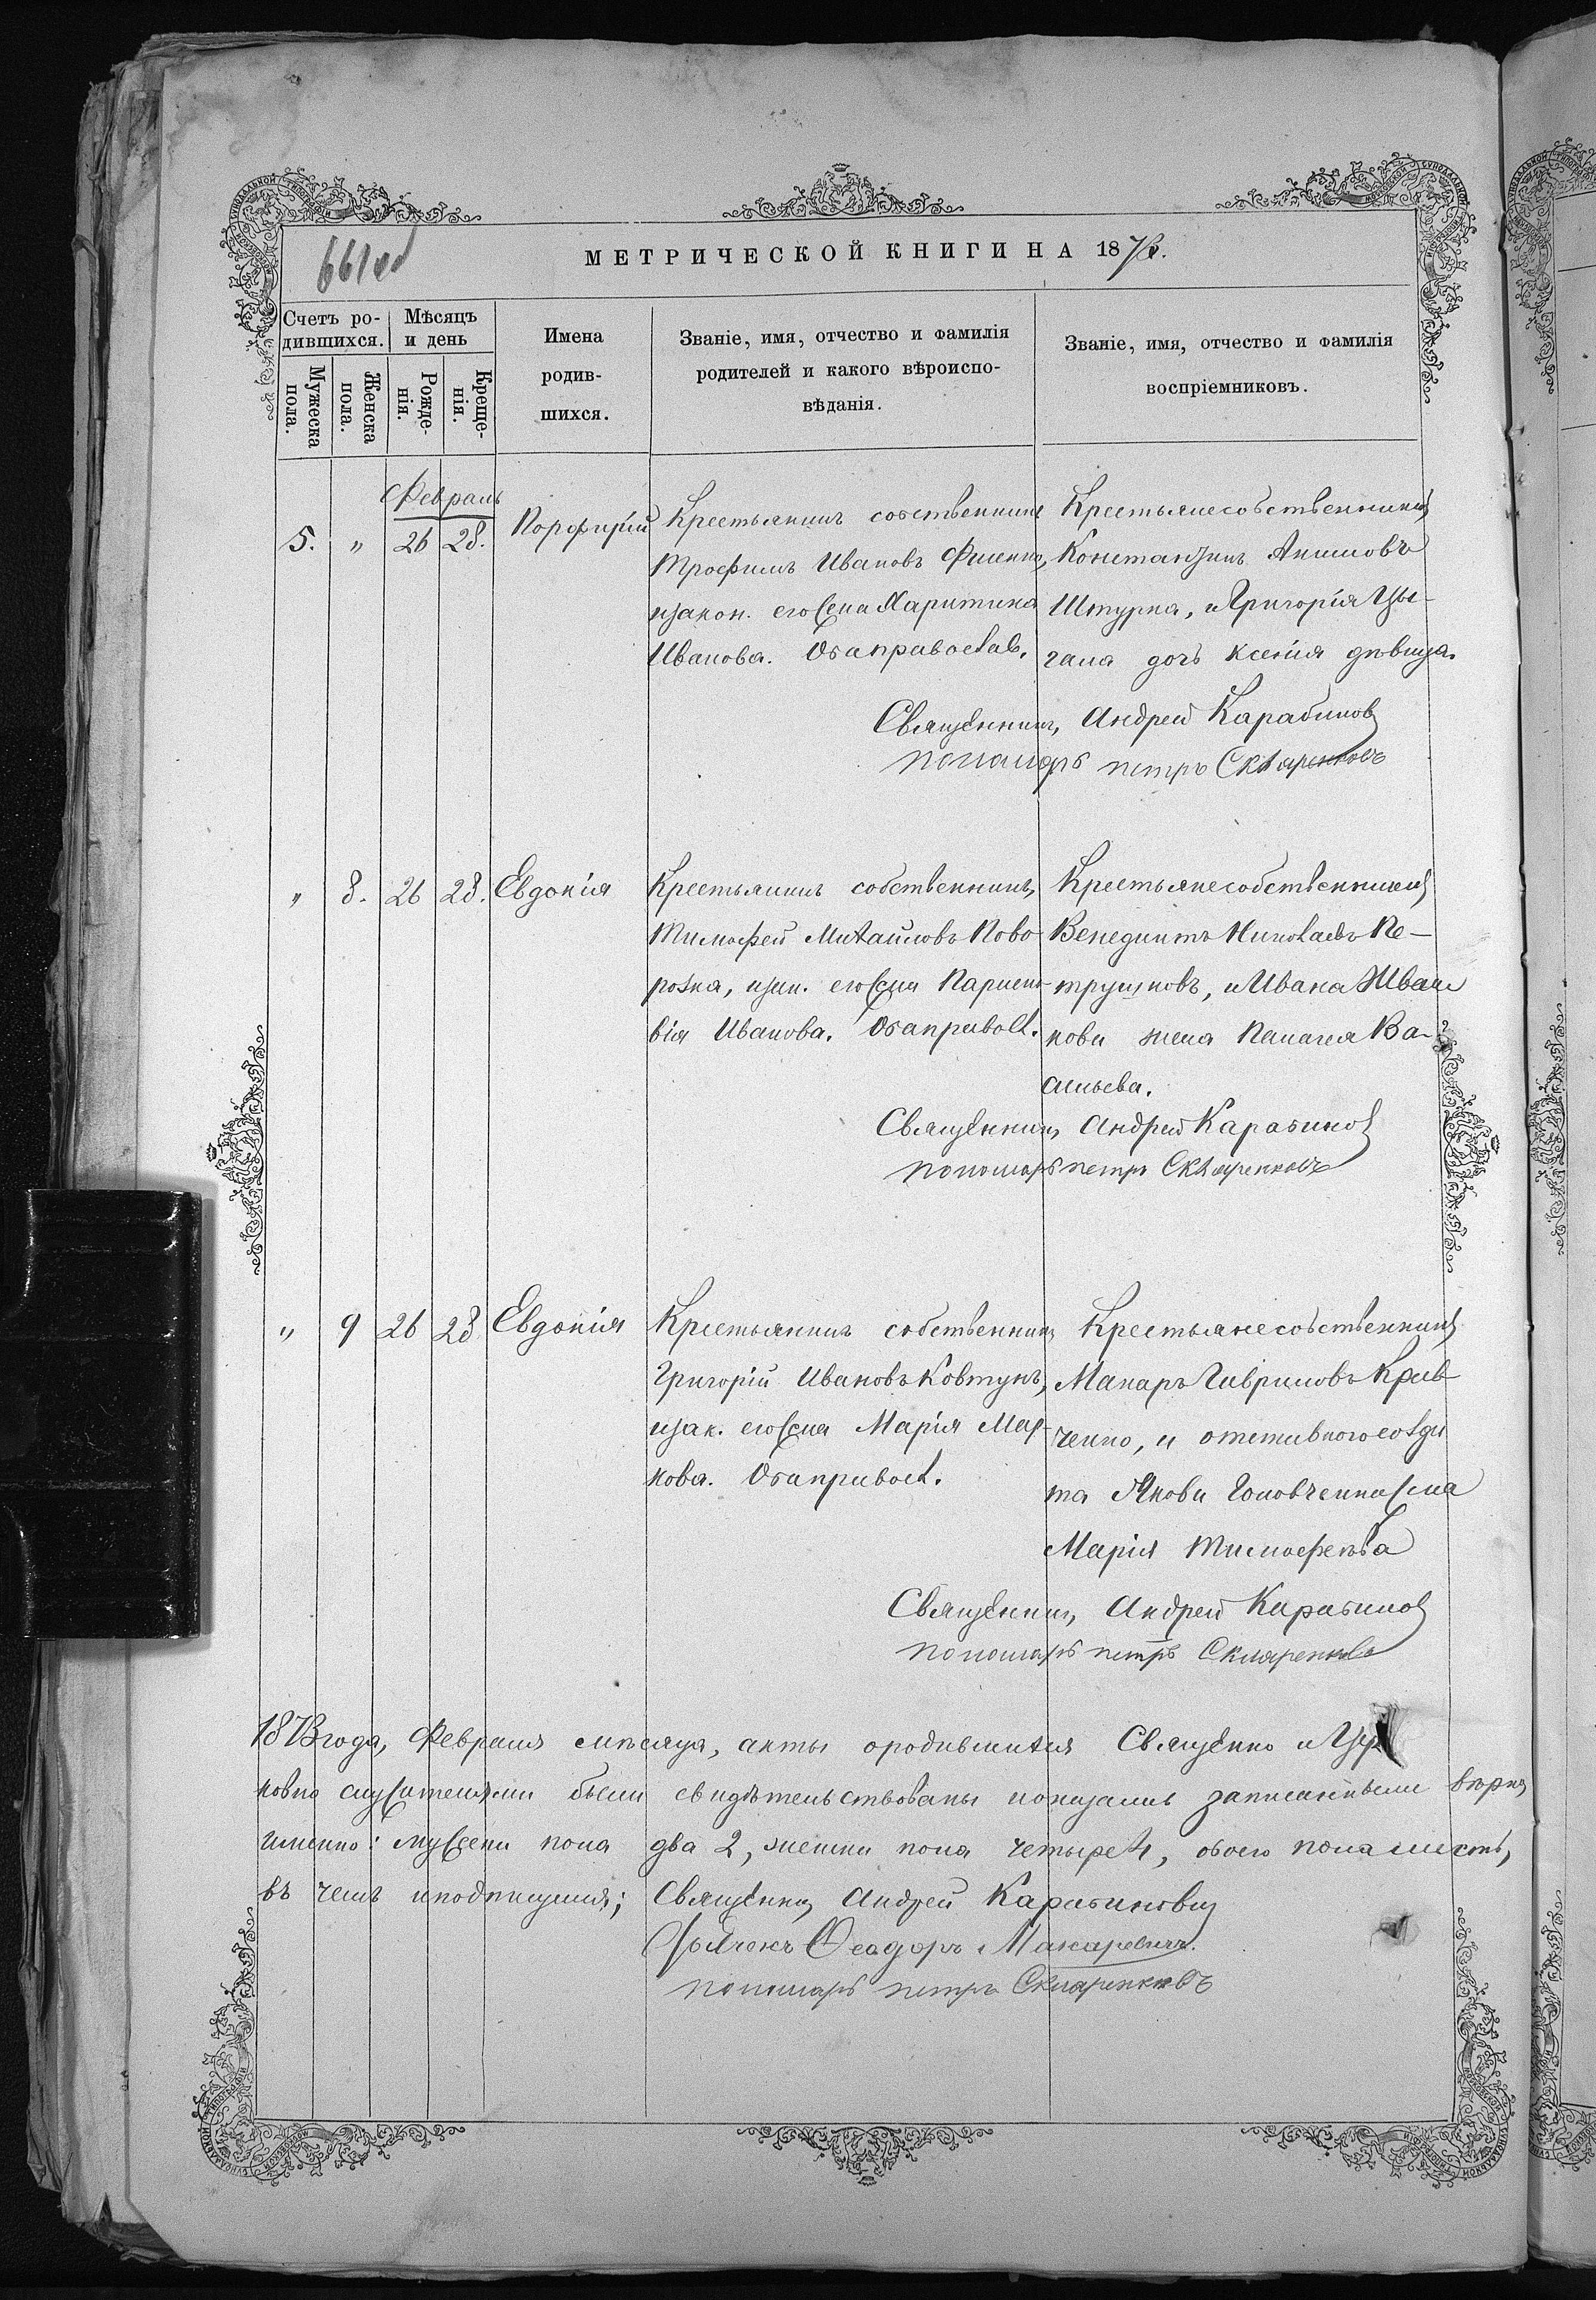 661 об
МЕТРИЧЕСКОЙ КНИГИ НА 1873.
Счетъ ро-
дившихся.
Мѣсяцъ
и день
Мужеска
пола.
Женска
пола.
Рожде-
нія.
Креще-
нія.
Имена
родив-
шихся.
Званіе, имя, отчество и фамилія
родителей и какого вѣроиспо-
вѣданія.
Званіе, имя, отчество и фамилія
воспріемниковъ.
Февраль
5. " 26 28. Порфирій
Крестьянинъ собственникъ
Трофимъ Ивановъ Фисенко,
изакон. его жена Харитина
Иванова. Оба православ.
Крестьяне собственники
Константинъ Акимовъ
Штурка, и Григорія Цы-
гана дочь Ксенія дѣвица.
Священникъ Андрей Карабиновъ
пономарь петръ Скляренковъ
" 8. 26 28. Евдокія
Крестьянинъ собственникъ,
Тимофей Михайловъ Пово-
розка, изак. его жена Параске-
вія Иванова. Оба правосл.
Крестьяне собственники
Венедиктъ Николаевъ Пе-
трушковъ, и Ивана Иван
кова жена Пелагея Ва-
сильева.
Священникъ Андрей Карабиновъ
пономарь петръ Скляренковъ
" 9 26 28 Евдокія
Крестьянинъ собственникъ
Григорій Ивановъ Ковтунъ,
изак. его жена Марія Мар-
кова. Оба правосл.
Крестьяне собственники
Макаръ Гавриловъ Крав-
ченко, и отставного солда
та Якова Головченка жена
Марія Тимофеева
Священникъ Андрей Карабиновъ
пономарь петръ Скляренковъ
1873 года, Февраля мѣсяца, акты о родившихся Священно и Цер
ковно служителями были свидѣтельствованы и оказались записанными вѣрно
именно: мужеска пола два 2, женска пола четыре 4, обоего пола шесть,
въ чемъ и подпишемся; Священникъ Андрей Карабиновъ
Дьячекъ Ѳеодоръ Макаревичъ.
пономарь петръ Скляренковъ